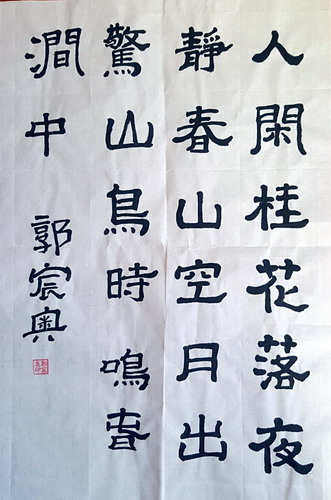 人閑桂花落夜
靜春山空月出
驚山鳥時鳴旾
澗中
郭宸奥